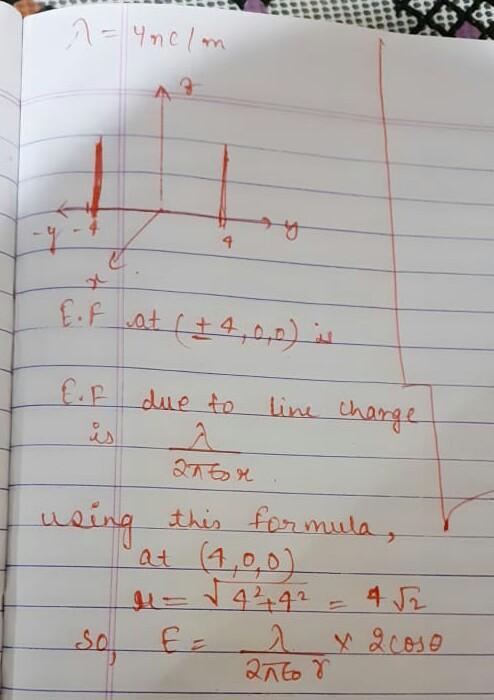 λ = 4nc/m
z
-y -4 4 y
x
E.F at (± 4,0,0) is
E.F due to line charge
is λ
2πε0r
using this formula,
at (4,0,0)
r = √4²+4² = 4√2
so, E = λ × 2cosθ
2πε0 r